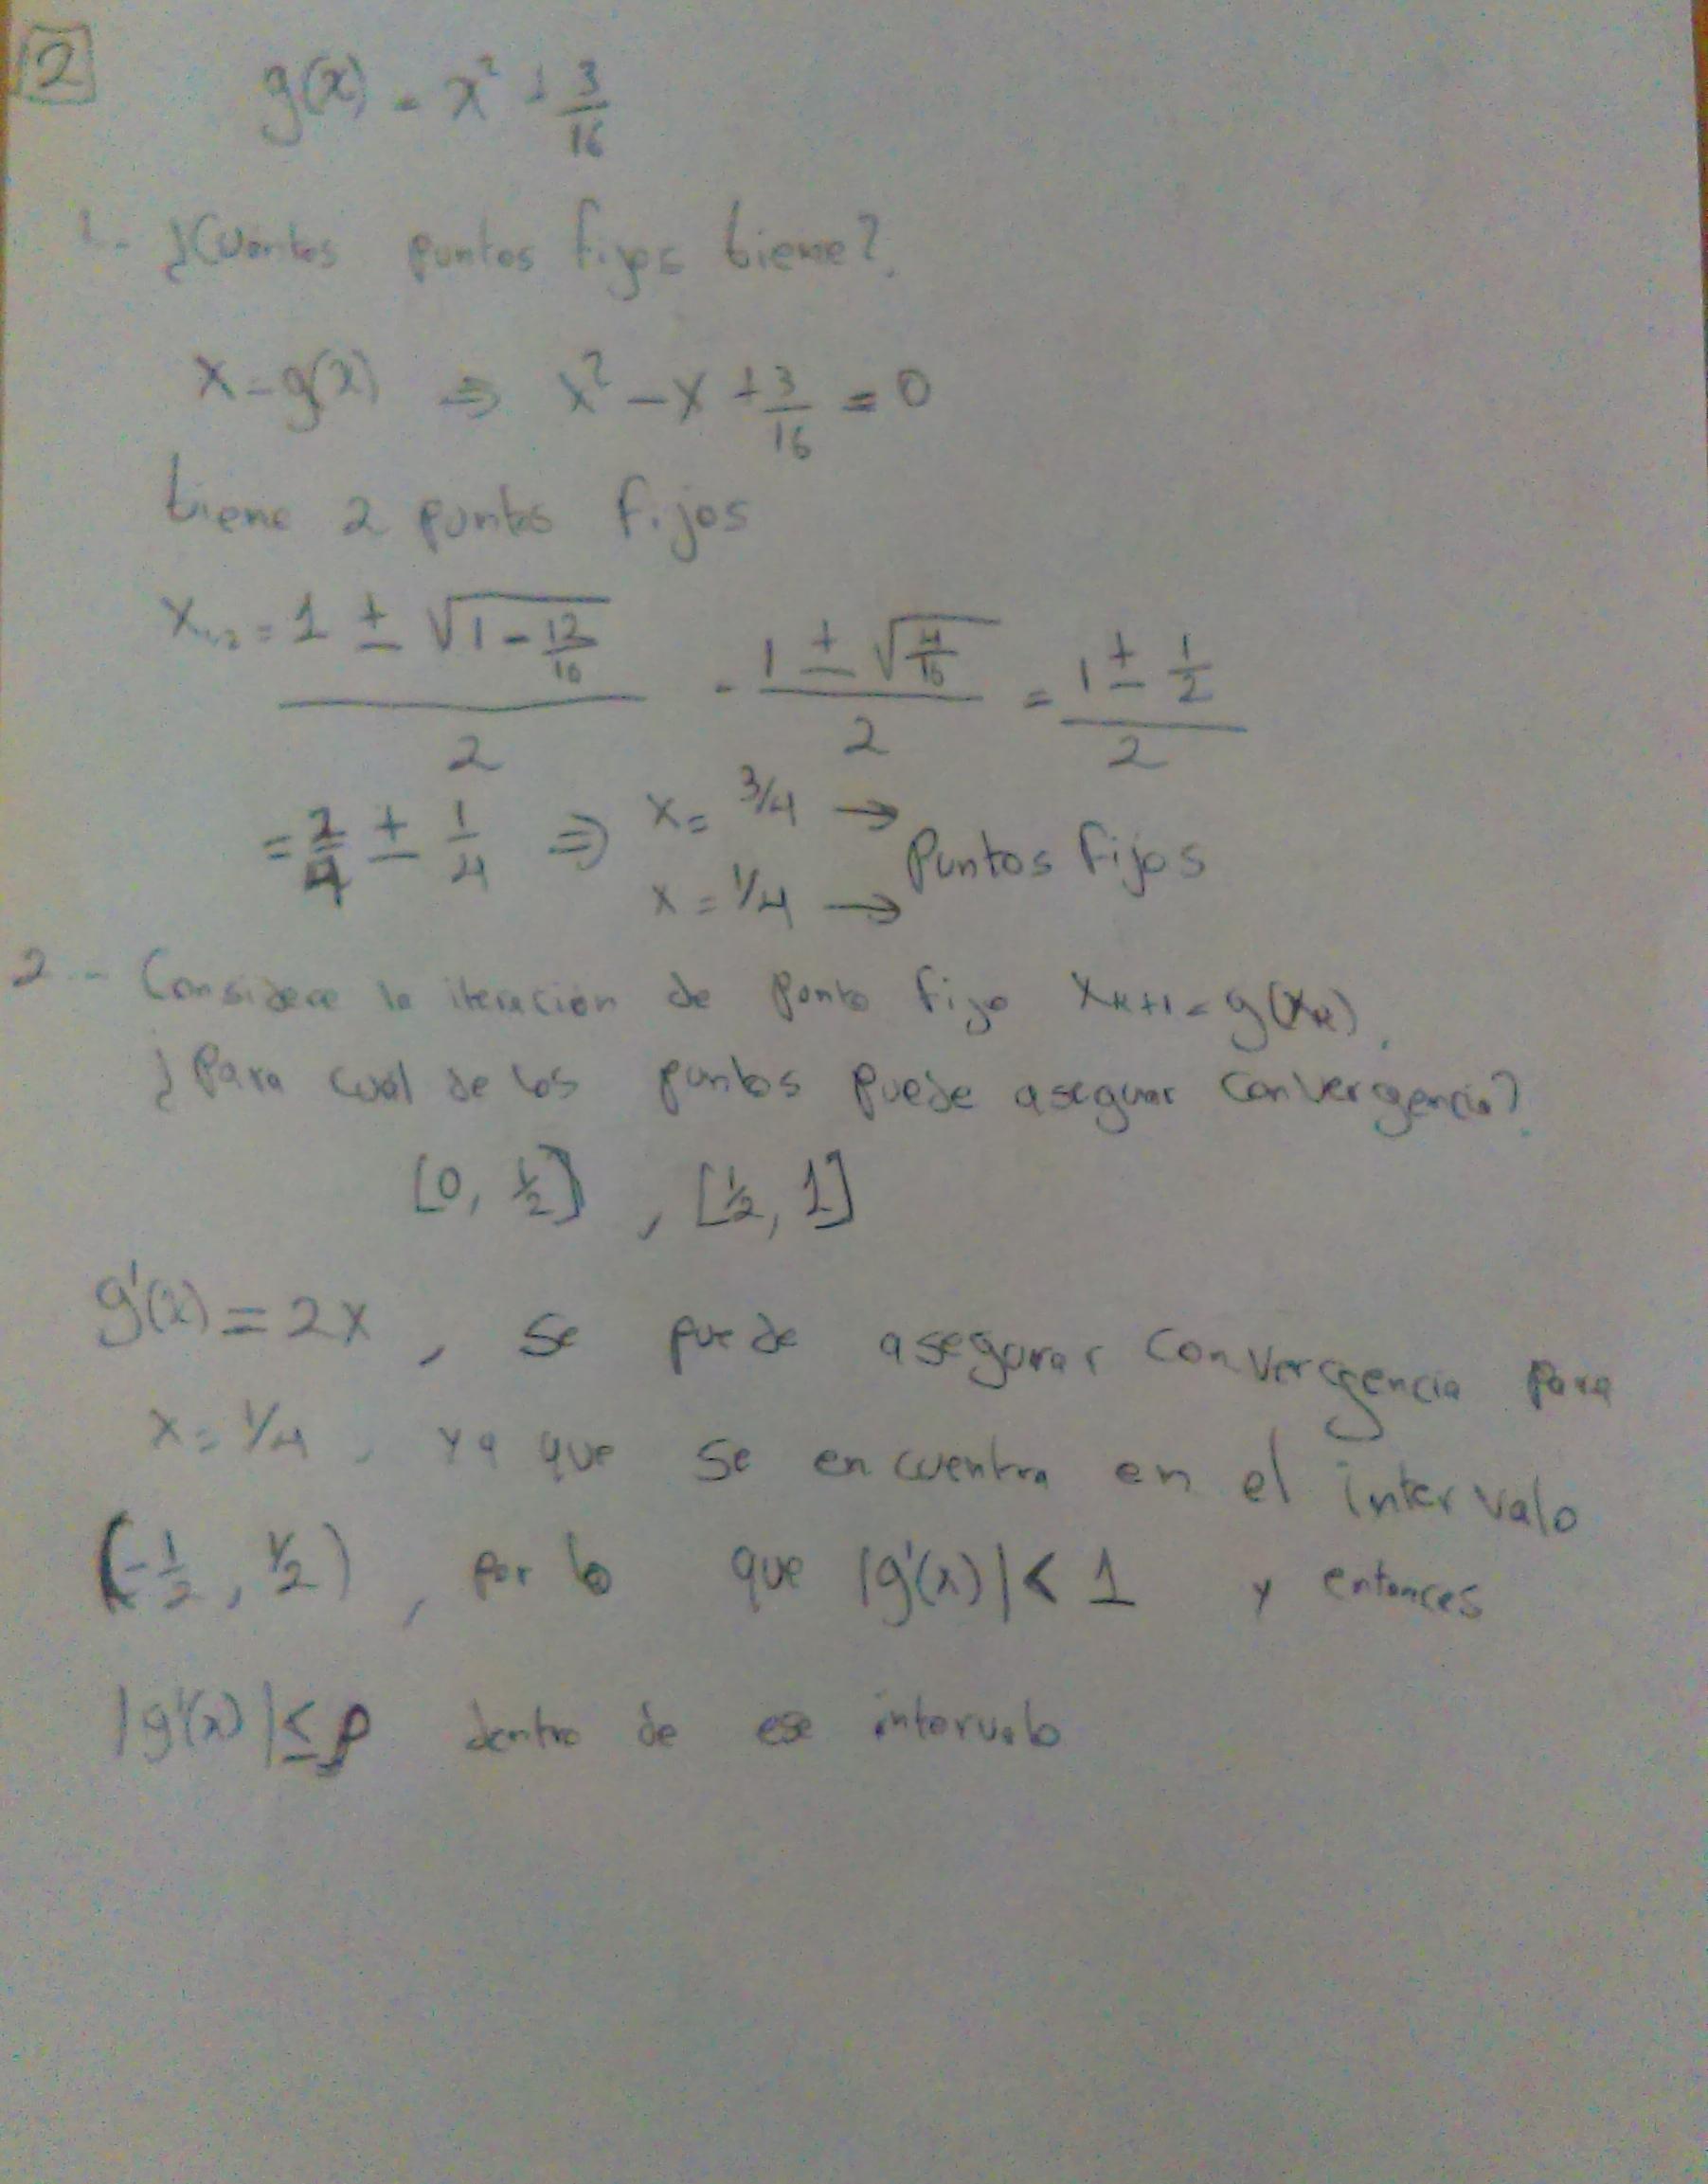 2
g(x) = x² + 3/16
1.- ¿Cuántos puntos fijos tiene?
x = g(x) ⇒ x² - x + 3/16 = 0
tiene 2 puntos fijos
x₁,₂ = (1 ± √(1 - 12/16))/2 = (1 ± √(4/16))/2 = (1 ± 1/2)/2
= 2/4 ± 1/4 ⇒ x = 3/4 →
x = 1/4 → Puntos fijos
2.- Considere la iteración de punto fijo xₖ₊₁ = g(xₖ).
¿Para cuál de los puntos puede asegurar convergencia?
[0, 1/2], [1/2, 1]
g'(x) = 2x, se puede asegurar convergencia para
x = 1/4, ya que se encuentra en el intervalo
(-1/2, 1/2), por lo que |g'(x)| < 1 y entonces
|g'(x)| ≤ ρ dentro de ese intervalo